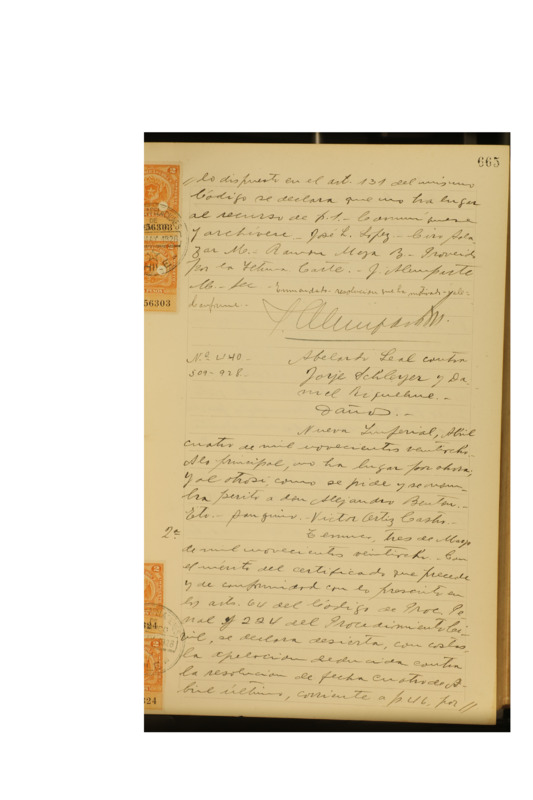 665
// lo dispuesto en el art. 131 del mismo
Código se declara que no ha lugar
al recurso de f. 1.- Comuníquese
y archívese - José L. López - Ciro Sala
zar M. - Ramon Meza B. - Proveido
por la Iltma Corte. - J. Alemparte
M. - Sec. - Enmendado resolucion
conforme.
J. Alemparte M.
N.º 440 -
509-928.
Abelardo Leal contra
Jorje Schleyer y Da-
niel Riquelme. -
Daños. -
Nueva Imperial, Abril
cuatro de mil novecientos veintiocho.-
A lo principal, no ha lugar por ahora;
y al otrosí, como se pide y se nom-
bra perito a don Alejandro
Eto. - Victor Ortiz Castro -
2ª
Temuco, tres de Mayo
de mil novecientos veintiocho. - Con
el mérito del certificado que precede
y de conformidad con lo prescrito en
los arts. 64 del Código de Proc. Pe
nal y 224 del Procedimiento Ci-
vil, se declara desierta, con costas,
la apelacion deducida contra
la resolucion de fecha cuatro de A-
bril último, corriente a f 46, por //
56303
56303
324
324